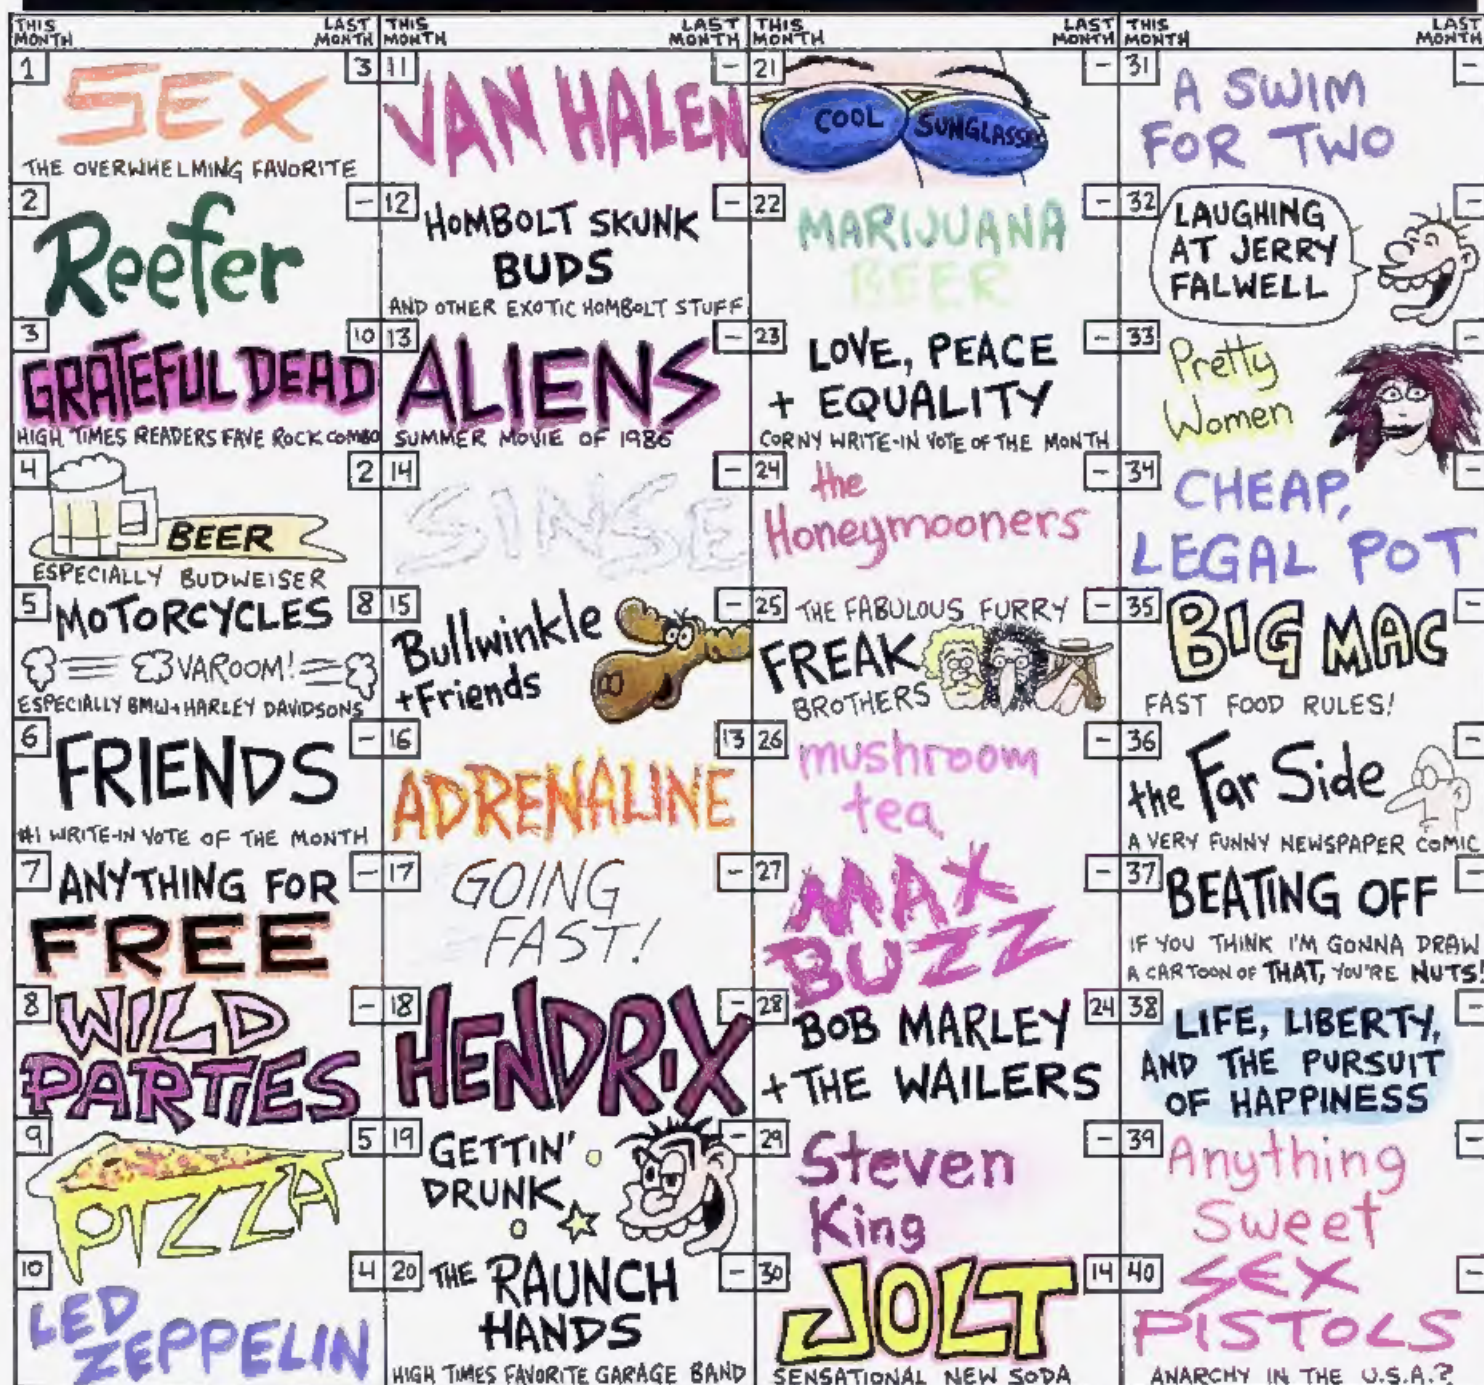 THIS MONTH LAST MONTH
THIS MONTH LAST MONTH
THIS MONTH LAST MONTH
THIS MONTH LAST MONTH
1 3
SEX
THE OVERWHELMING FAVORITE
2 -
Reefer
3 10
GRATEFUL DEAD
HIGH TIMES READERS FAVE ROCK COMBO
4 2
BEER
ESPECIALLY BUDWEISER
5 8
MOTORCYCLES
VAROOM!
ESPECIALLY BMW + HARLEY DAVIDSONS
6 -
FRIENDS
#1 WRITE-IN VOTE OF THE MONTH
7 -
ANYTHING FOR
FREE
8 -
WILD
PARTIES
9 5
PIZZA
10 4
LED
ZEPPELIN
11 -
VAN HALEN
12 -
HOMBOLT SKUNK
BUDS
AND OTHER EXOTIC HOMBOLT STUFF
13 -
ALIENS
SUMMER MOVIE OF 1986
14 -
SINSE
15 -
Bullwinkle
+ Friends
16 13
ADRENALINE
17 -
GOING
FAST!
18 -
HENDRIX
19 -
GETTIN'
DRUNK
20 -
THE RAUNCH
HANDS
HIGH TIMES FAVORITE GARAGE BAND
21 -
COOL SUNGLASSES
22 -
MARIJUANA
BEER
23 -
LOVE, PEACE
+ EQUALITY
CORNY WRITE-IN VOTE OF THE MONTH
24 -
the
Honeymooners
25 -
THE FABULOUS FURRY
FREAK
BROTHERS
26 -
mushroom
tea
27 -
MAX
BUZZ
28 24
BOB MARLEY
+ THE WAILERS
29 -
Steven
King
30 14
JOLT
SENSATIONAL NEW SODA
31 -
A SWIM
FOR TWO
32 -
LAUGHING
AT JERRY
FALWELL
33 -
Pretty
Women
34 -
CHEAP,
LEGAL POT
35 -
BIG MAC
FAST FOOD RULES!
36 -
the Far Side
A VERY FUNNY NEWSPAPER COMIC
37 -
BEATING OFF
IF YOU THINK I'M GONNA DRAW
A CARTOON OF THAT, YOU'RE NUTS!
38 -
LIFE, LIBERTY,
AND THE PURSUIT
OF HAPPINESS
39 -
Anything
Sweet
40 -
SEX
PISTOLS
ANARCHY IN THE U.S.A.?